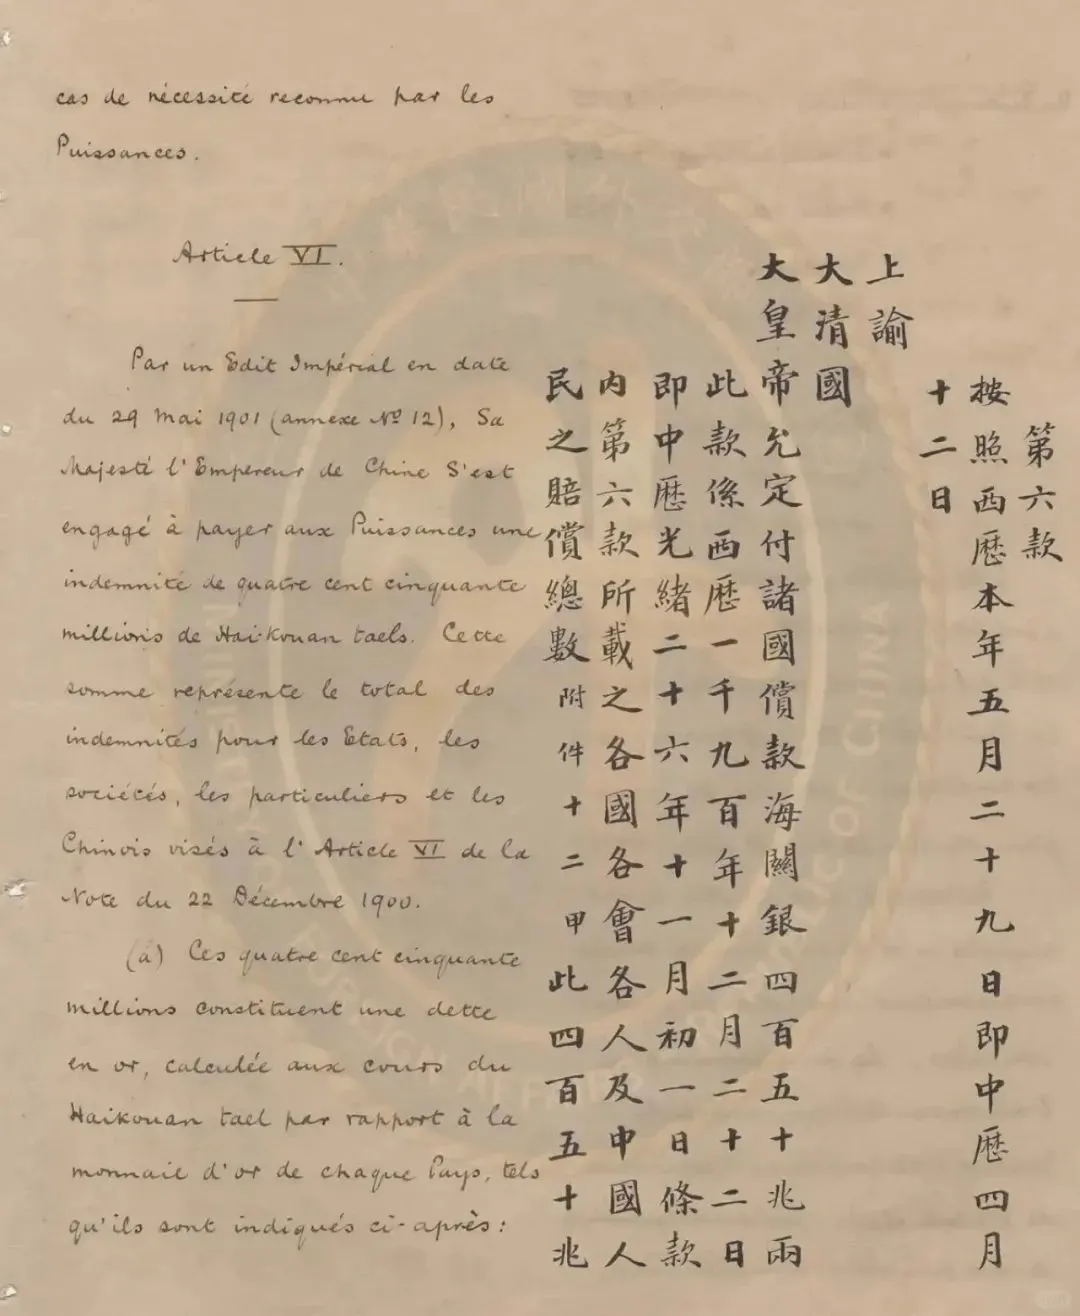 cas de nécessité reconnu par les
Puissances.
Article VI.
Par un Edit Impérial en date
du 29 Mai 1901 (annexe Nº 12), Sa
Majesté l'Empereur de Chine S'est
engagé à payer aux Puissances une
indemnité de quatre cent cinquante
millions de Haï-Kouan taels. Cette
somme représente le total des
indemnités pour les Etats, les
sociétés, les particuliers et les
Chinois visés à l'Article VI de la
Note du 22 Décembre 1900.
(a) Ces quatre cent cinquante
millions constituent une dette
en or, calculée aux cours du
Haikouan tael par rapport à la
monnaie d'or de chaque Pays, tels
qu'ils sont indiqués ci-après:
第六款
按照西歷本年五月二十九日即中歷四月
十二日
上諭
大清國
大皇帝允定付諸國償款海關銀四百五十兆兩
此款係西歷一千九百年十二月二十二日
即中歷光緒二十六年十一月初一日條款
內第六款所載之各國各會各人及中國人
民之賠償總數附件十二甲此四百五十兆